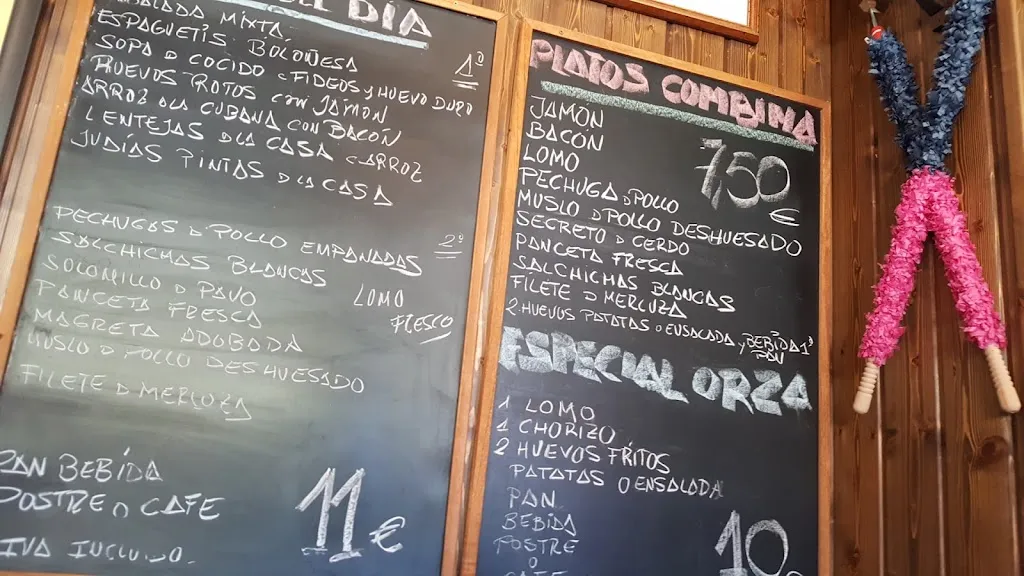 DIA
MIXTA
ESPAGUETIS BOLOÑESA
1º
SOPA D COCIDO CFIDEOS y HUEVO DURO
HUEVOS ROTOS CON JAMÓN
ARROZ ALA CUBANA CON BACÓN
LENTEJAS DLA CASA CARROZ
JUDÍAS PINTAS DLA CASA
PECHUGAS D POLLO EMPANADAS
2º
SALCHICHAS BLANCAS
SOLOMILLO D PAVO
LOMO FRESCO
PANCETA FRESCA
MAGRETA ADOBADA
MUSLO D POLLO DESHUESADO
FILETE D MERLUZA
PAN BEBÍDA
POSTRE O CAFE
IVA INCLUIDO.
11 €
PLATOS COMBINA
JAMÓN
BACÓN
LOMO
7,50 €
PECHUGA D POLLO
MUSLO D POLLO DESHUESADO
SECRETO D CERDO
PANCETA FRESCA
SALCHICHAS BLANCAS
FILETE D MERLUZA
2 HUEVOS PATATAS O ENSALADA, BEBÍDA 1ª
PAN
ESPECIAL ORZA
1 LOMO
1 CHORIZO
2 HUEVOS FRÍTOS
PATATAS O ENSALADA
PAN
BEBIDA
POSTRE
O
10